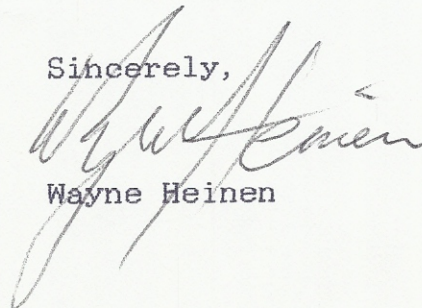 Sincerely,
Wayne Heinen
Wayne Heinen